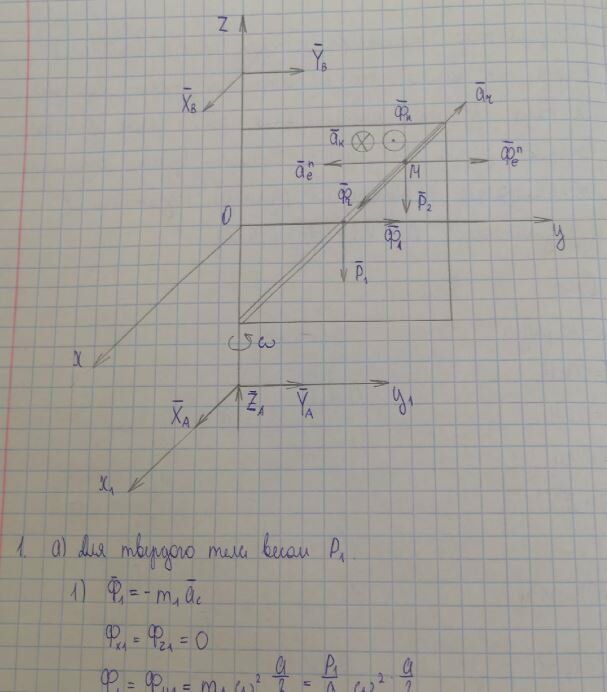 Z
Ȳ_B
X̄_B
ā_r
Φ̄_k
ā_k
ā_e^n
M
Φ̄_e^n
Φ̄_r
P̄_2
O
Φ̄_1
y
P̄_1
x
ω
X̄_A
Z̄_A
Ȳ_A
y_1
x_1
1. а) Для твердого тела весом P_1.
1) Φ̄_1 = -m_1 ā_c
Φ_x1 = Φ_z1 = 0
Φ_1 = Φ_y1 = m_1 ω² a/2 = P_1/g ω² · a/2